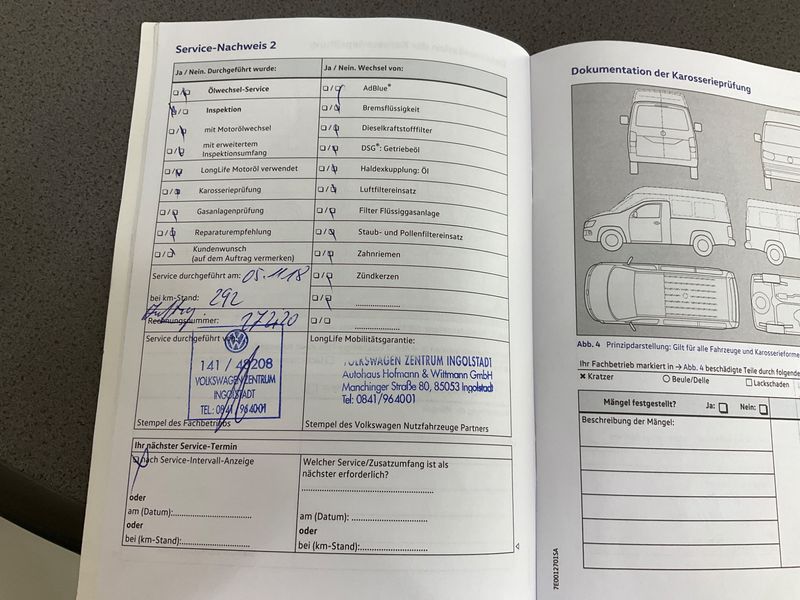 Service-Nachweis 2
Ja / Nein. Durchgeführt wurde:
Ölwechsel-Service
Inspektion
mit Motorölwechsel
mit erweitertem
Inspektionsumfang
LongLife Motoröl verwendet
Karosserieprüfung
Gasanlagenprüfung
Reparaturempfehlung
Kundenwunsch
(auf dem Auftrag vermerken)
Service durchgeführt am: 05.11.18
bei km-Stand: 292
Rechnungsnummer: 27220
Service durchgeführt
141 / 48208
VOLKSWAGEN ZENTRUM
INGOLSTADT
TEL.: 0841 / 964001
Stempel des Fachbetriebs
Ja / Nein. Wechsel von:
AdBlue®
Bremsflüssigkeit
Dieselkraftstofffilter
DSG®: Getriebeöl
Haldexkupplung: Öl
Luftfiltereinsatz
Filter Flüssiggasanlage
Staub- und Pollenfiltereinsatz
Zahnriemen
Zündkerzen
LongLife Mobilitätsgarantie:
VOLKSWAGEN ZENTRUM INGOLSTADT
Autohaus Hofmann & Wittmann GmbH
Manchinger Straße 80, 85053 Ingolstadt
Tel: 0841/964001
Stempel des Volkswagen Nutzfahrzeuge Partners
Ihr nächster Service-Termin
nach Service-Intervall-Anzeige
oder
am (Datum):
oder
bei (km-Stand):
Welcher Service/Zusatzumfang ist als
nächster erforderlich?
am (Datum):
oder
bei (km-Stand):
Dokumentation der Karosserieprüfung
Abb. 4 Prinzipdarstellung: Gilt für alle Fahrzeuge und Karosserieforme
Ihr Fachbetrieb markiert in → Abb. 4 beschädigte Teile durch folgende
✖ Kratzer
Beule/Delle
Lackschaden
Mängel festgestellt? Ja: Nein:
Beschreibung der Mängel:
7E0012701SA